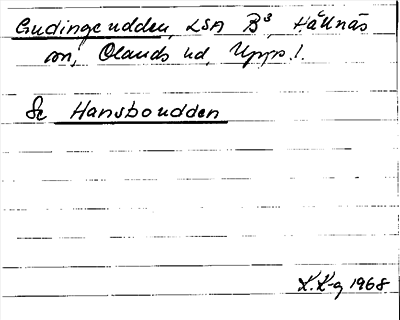 Gudinge udden, LSA B³, Hållnäs
sn, Olands hd, Upps.l.
Se Hansboudden
K.K-g 1968